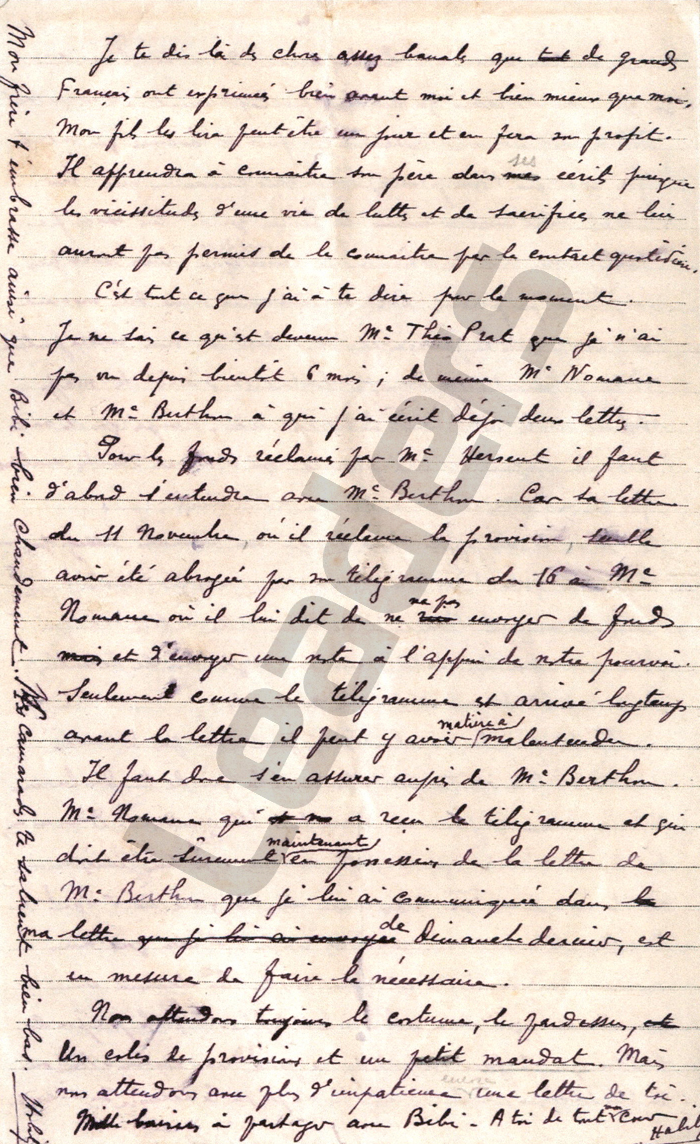 Je te dis là ds choses assez banals que de grands
Français ont exprimées bien avant moi et bien mieux que moi.
Mon fils les lira peut être un jour et en fera son profit.
Il apprendra à connaître son père dans ses écrits puisque
les vicissitudes d'une vie de lutte et de sacrifices ne lui
auront pas permis de le connaître par le contact quotidien.
C'est tout ce que j'ai à te dire pour le moment.
Je ne sais ce qu'est devenu Me Théo Prat que je n'ai
pas vu depuis bientôt 6 mois ; de même Me Nomane
et Me Berthon à qui j'ai écrit déjà deux lettres.
Pour les fonds réclamés par Me Hersent il faut
d'abord s'entendre avec Me Berthon. Car sa lettre
du 11 Novembre, où il réclame la provision, semble
avoir été abrogée par son télégramme du 16 à Me
Nomane où il lui dit de ne ne pas envoyer de fonds
mais et d'envoyer une note à l'appui de notre pourvoi.
Seulement comme le télégramme est arrivé longtemps
avant la lettre il peut y avoir matière à malentendu.
Il faut donc s'en assurer auprès de Me Berthon.
Me Nomane qui a reçu le télégramme et qui
doit être sûrement maintenant en possession de la lettre de
Me Berthon que je lui ai communiquée dans la
ma lettre que je lui ai envoyée de Dimanche dernier, est
en mesure de faire le nécessaire.
Nous attendons toujours le costume, le pardessus, et
un colis de provisions et un petit mandat. Mais
nous attendons avec plus d'impatience encore une lettre de toi.
Mille baisers à partager avec Bibi. A toi de tout cœur
Habib
Mon frère t'embrasse ainsi que Bibi bien chaudement. Les camarades te saluent bien bas.
Habib
Leaders